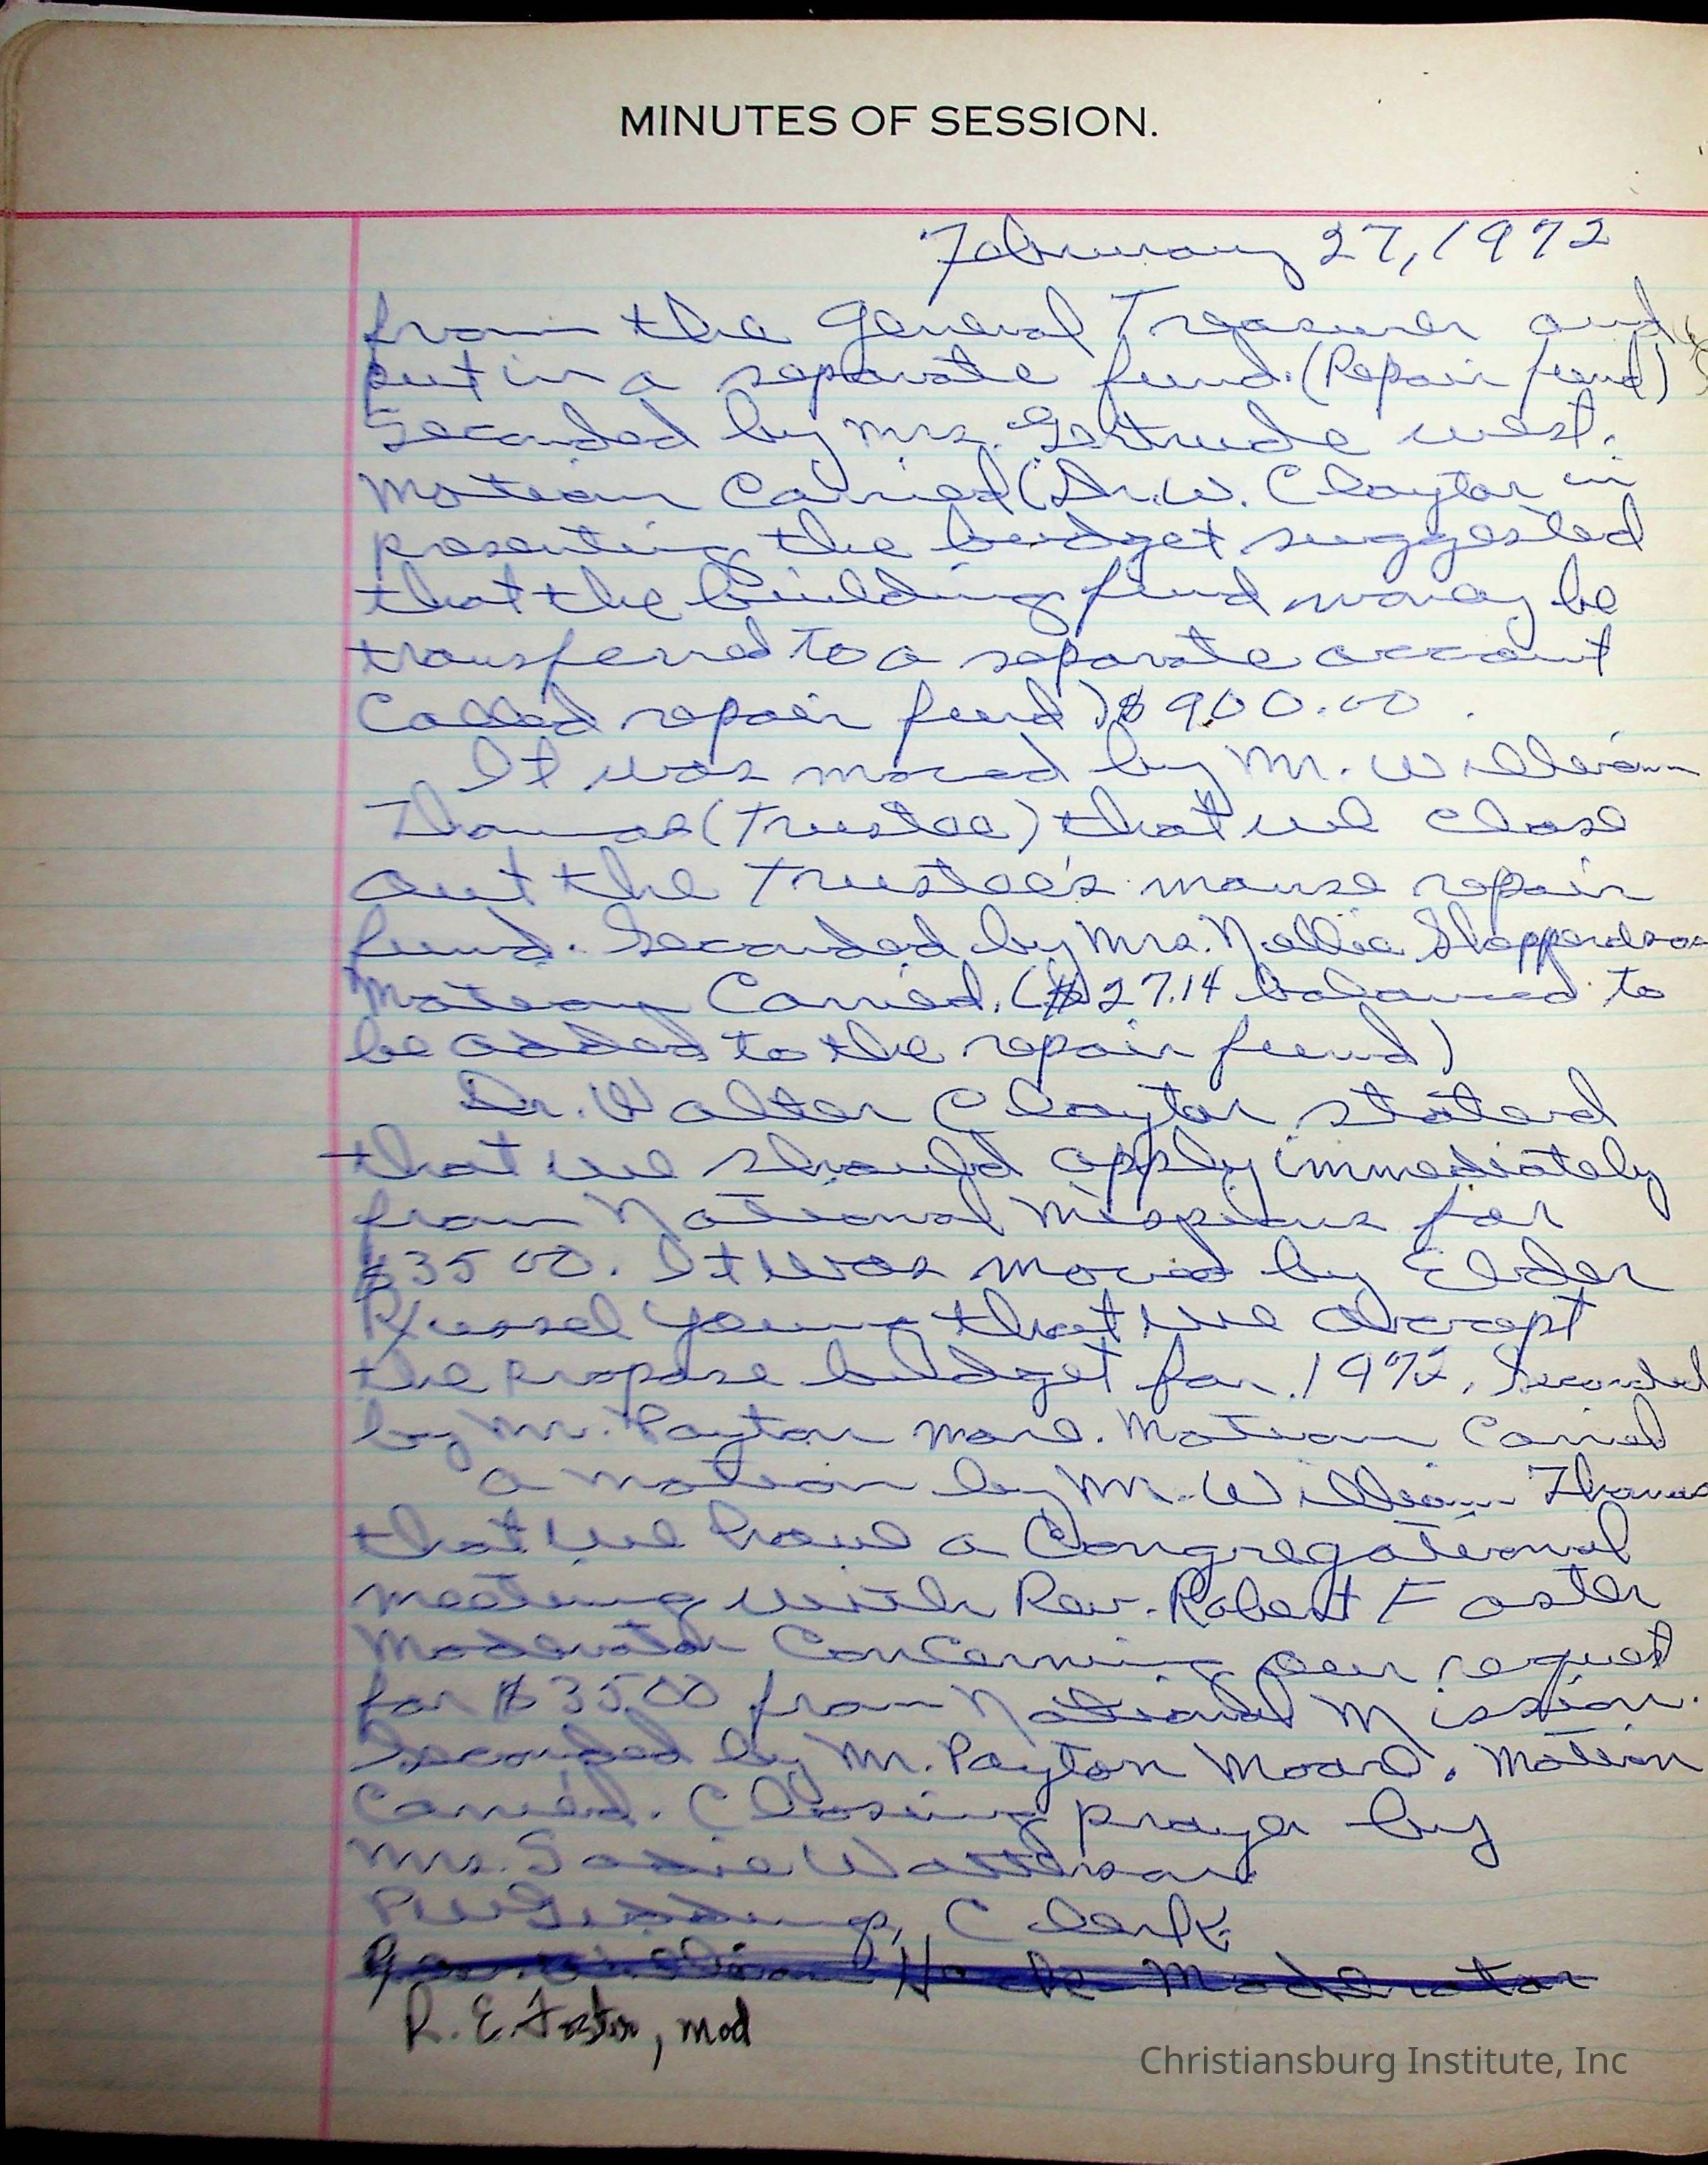 MINUTES OF SESSION.
February 27, 1972
from the General Treasurer and
put in a separate fund. (Repair fund)
Seconded by Mrs. Gertrude West.
Motion Carried (Dr. W. Clayton in
presenting the budget suggested
that the building fund money be
transferred to a separate account
Called repair fund) $900.00.
It was moved by Mr. William
Thomas (Trustee) that we close
out the Trustee's manse repair
fund. Seconded by Mrs. Nellie Shepperdson
Motion Carried. ($27.14 balanced to
be added to the repair fund)
Dr. Walter Clayton stated
that we should apply immediately
from National Missions for
$3500. It was moved by Elder
Russel Young that we accept
the propose budget for 1972. Seconded
by Mr. Payton More. Motion Carried
A motion by Mr. William Thomas
that we have a Congregational
meeting with Rev. Robert Foster
Moderator Concerning our request
for $3500 from National Mission.
Seconded by Mr. Payton Moore. Motion
Carried. Closing prayer by
Mrs. Sadie Watterson
Giddings, Clerk
Moderator
R. E. Foster, Mod
Christiansburg Institute, Inc